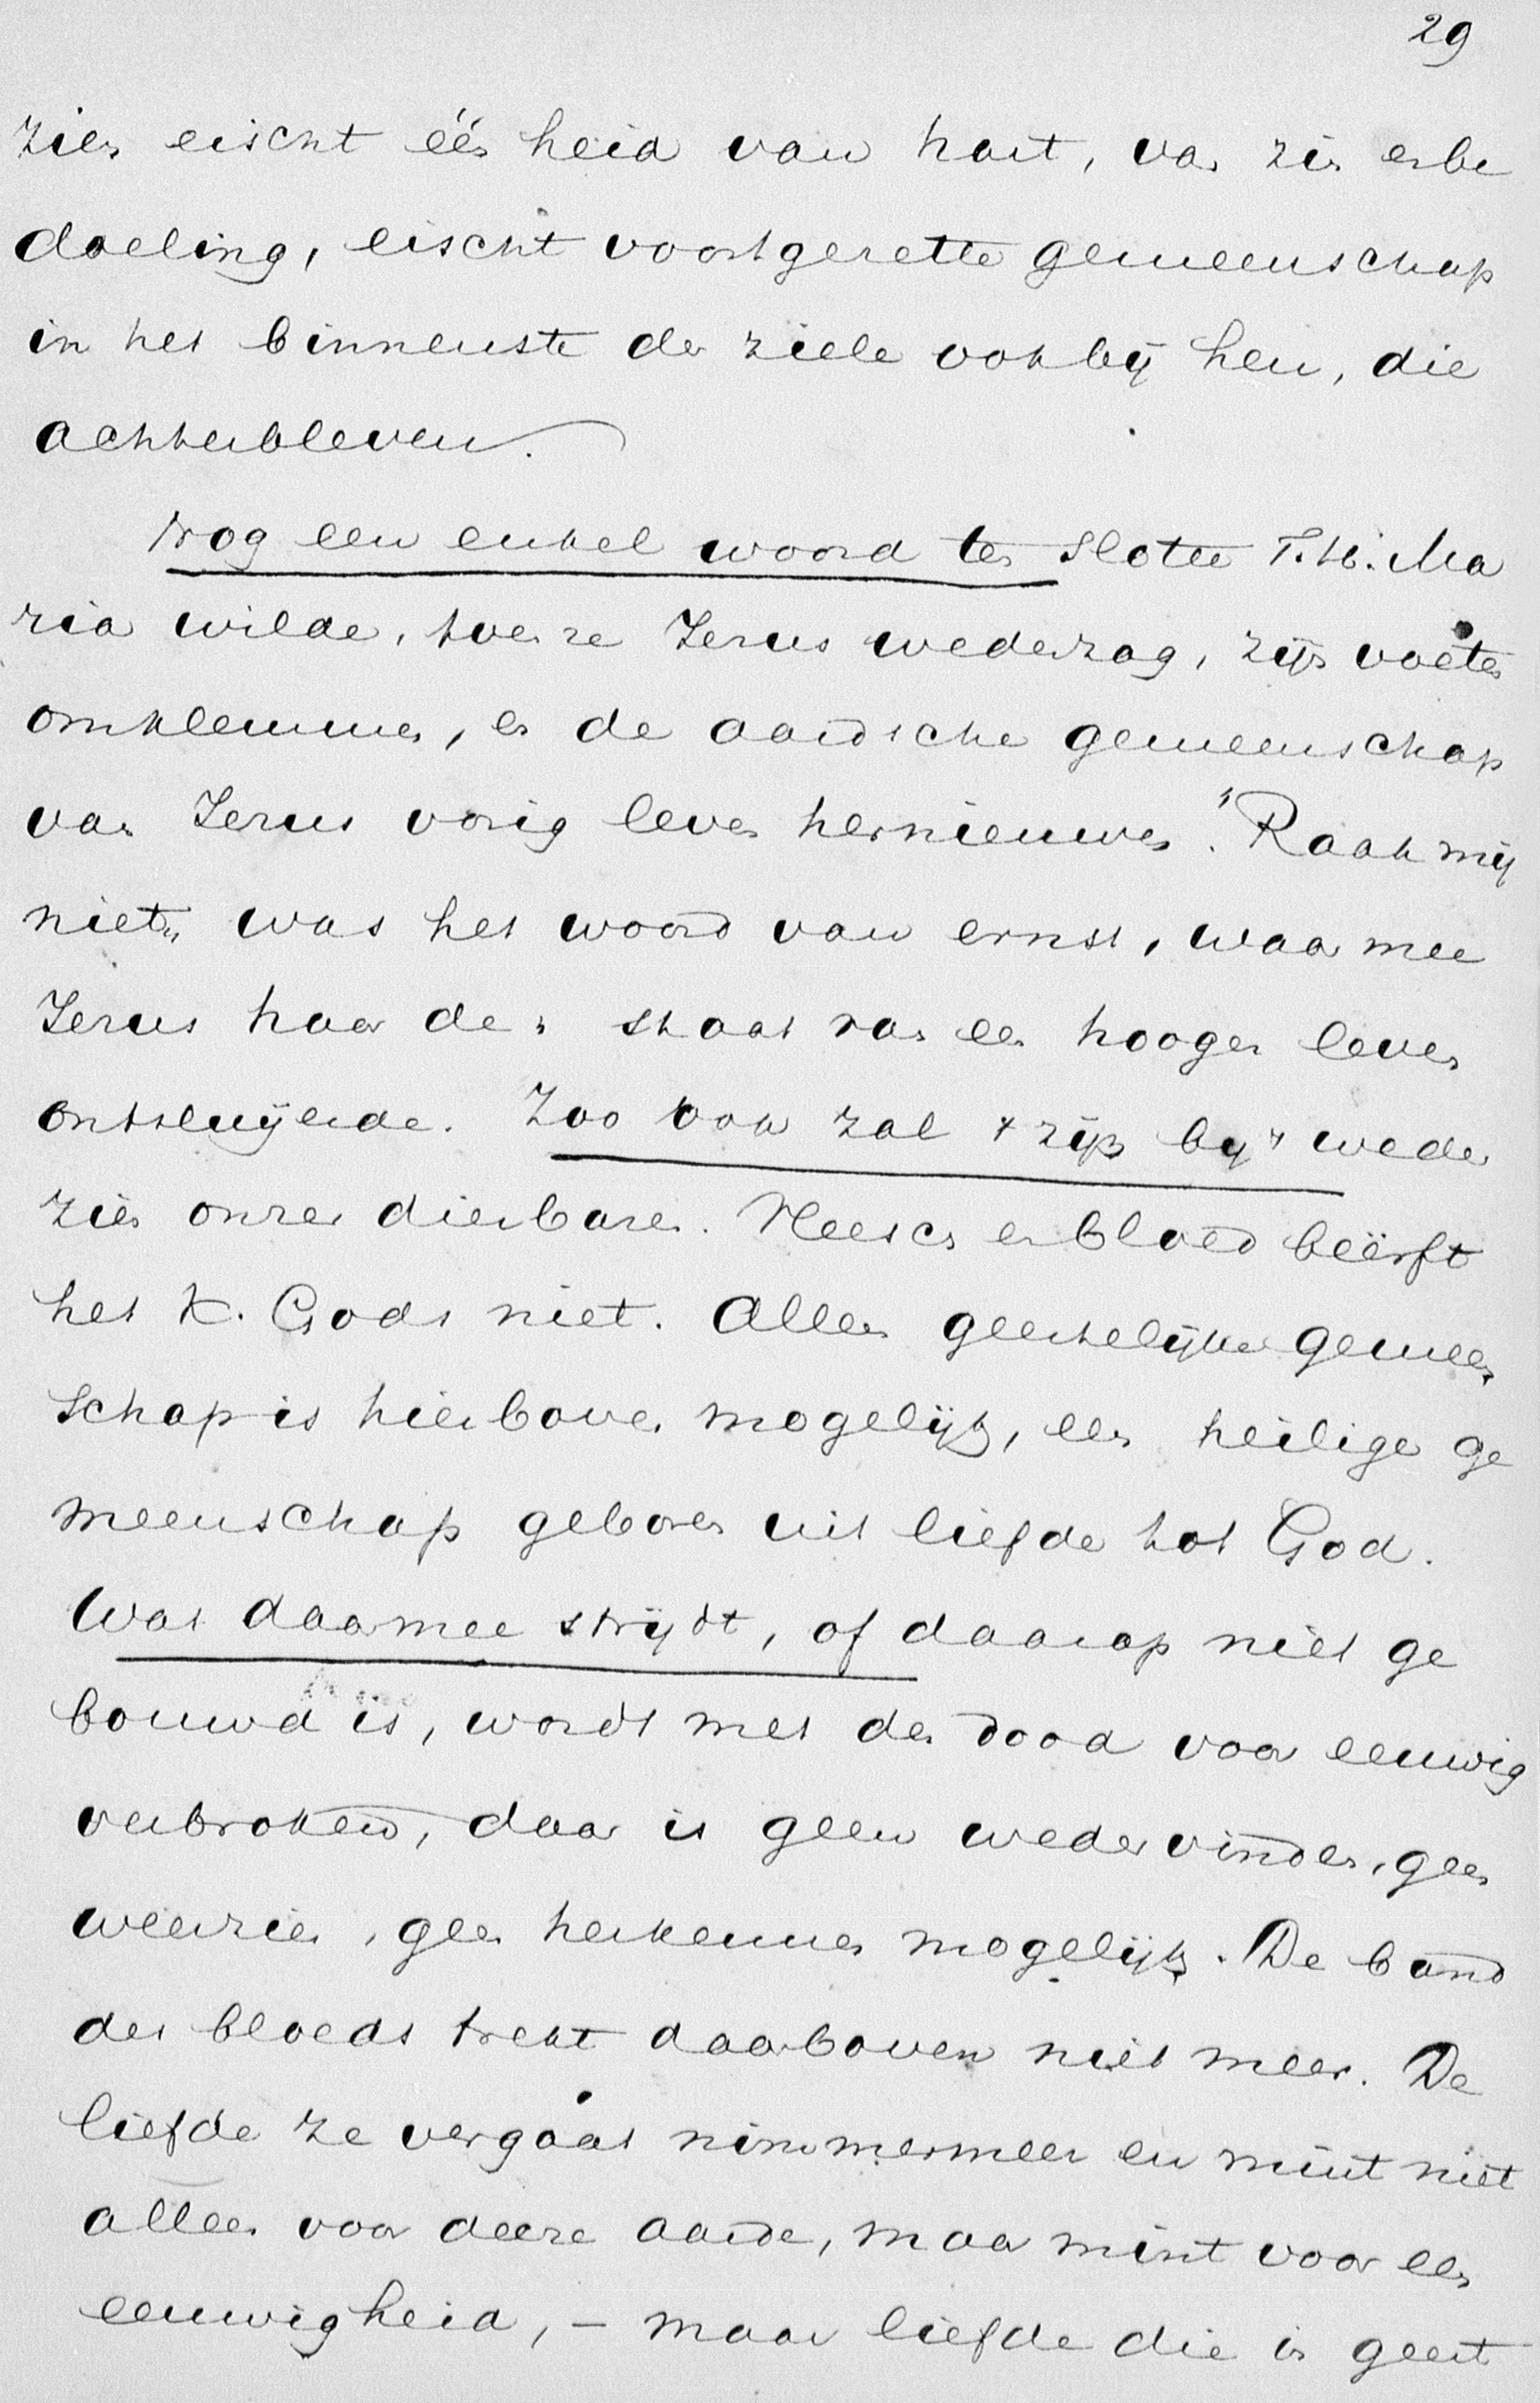 29
zien eischt één heid van hart, van zin en be
doeling, eischt voortgezette gemeenschap
in het binnenste der ziele ook bij hen, die
achterbleven.
Nog een enkel woord ten slotte T. H. Ma
ria wilde, toen ze Jezus wederzag, zijn voeten
omklemmen, en de aardsche gemeenschap
van Jezus vorig leven hernieuwen. "Raak mij
niet" was het woord van ernst, waarmee
Jezus haar den staat van een hooger leven
ontsluijerde. Zoo ook zal 't zijn bij 't weder
zien onzer dierbaren. Vleesch en bloed beërft
het K. Gods niet. Alleen geestelijke gemeen
schap is hierboven mogelijk, een heilige ge
meenschap geboren uit liefde tot God.
Wat daarmee strijdt, of daarop niet ge
bouwd is, wordt met den dood voor eeuwig
verbroken, daar is geen wedervinden, geen
weerzien, geen herkennen mogelijk. De band
des bloeds trekt daarboven niet meer. De
liefde ze vergaat nimmermeer en mint niet
alleen voor deeze aarde, maar mint voor een
eeuwigheid, – maar liefde die is geest